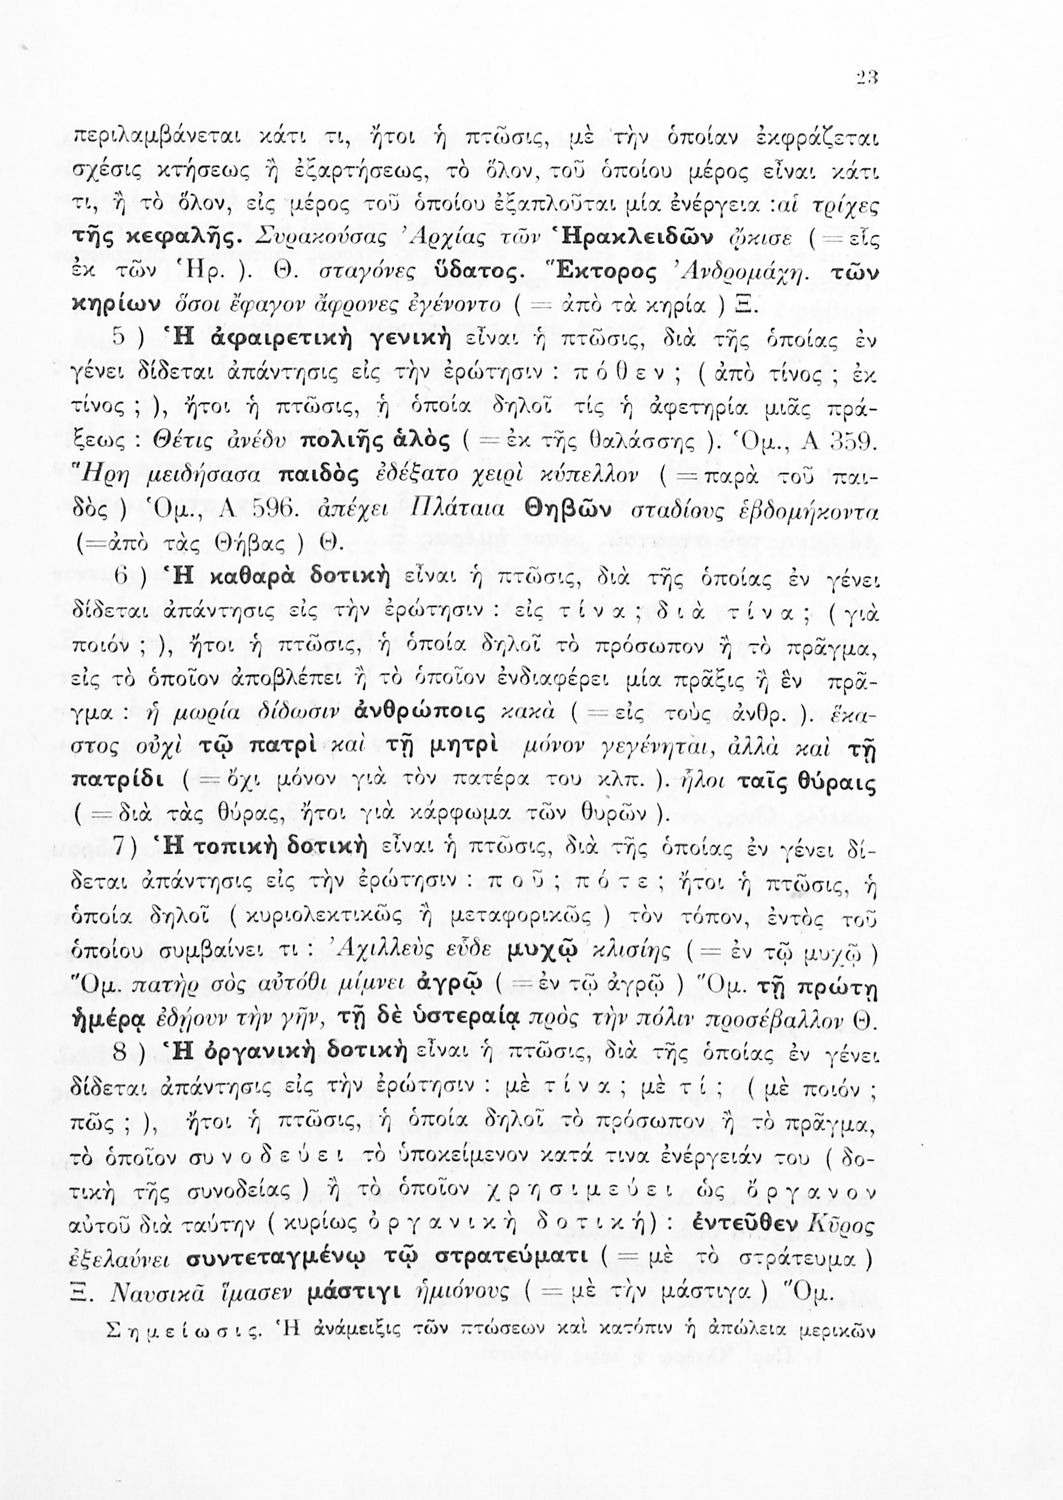 23
περιλαμβάνεται κάτι τι, ἤτοι ἡ πτῶσις, μὲ τὴν ὁποίαν ἐκφράζεται
σχέσις κτήσεως ἢ ἐξαρτήσεως, τὸ ὅλον, τοῦ ὁποίου μέρος εἶναι κάτι
τι, ἢ τὸ ὅλον, εἰς μέρος τοῦ ὁποίου ἐξαπλοῦται μία ἐνέργεια :αἱ τρίχες
τῆς κεφαλῆς. Συρακούσας Ἀρχίας τῶν Ἡρακλειδῶν ᾤκισε ( = εἷς
ἐκ τῶν Ἡρ. ). Θ. σταγόνες ὕδατος. Ἕκτορος Ἀνδρομάχη. τῶν
κηρίων ὅσοι ἔφαγον ἄφρονες ἐγένοντο ( = ἀπὸ τὰ κηρία ) Ξ.
5 ) Ἡ ἀφαιρετικὴ γενικὴ εἶναι ἡ πτῶσις, διὰ τῆς ὁποίας ἐν
γένει δίδεται ἀπάντησις εἰς τὴν ἐρώτησιν : π ό θ ε ν ; ( ἀπὸ τίνος ; ἐκ
τίνος ; ), ἤτοι ἡ πτῶσις, ἡ ὁποία δηλοῖ τίς ἡ ἀφετηρία μιᾶς πρά-
ξεως : Θέτις ἀνέδυ πολιῆς ἁλὸς ( = ἐκ τῆς θαλάσσης ). Ὁμ., Α 359.
Ἥρη μειδήσασα παιδὸς ἐδέξατο χειρὶ κύπελλον ( = παρὰ τοῦ παι-
δὸς ) Ὁμ., Α 596. ἀπέχει Πλάταια Θηβῶν σταδίους ἑβδομήκοντα
(=ἀπὸ τὰς Θήβας ) Θ.
6 ) Ἡ καθαρὰ δοτικὴ εἶναι ἡ πτῶσις, διὰ τῆς ὁποίας ἐν γένει
δίδεται ἀπάντησις εἰς τὴν ἐρώτησιν : εἰς τ ί ν α ; δ ι ὰ τ ί ν α ; ( γιὰ
ποιόν ; ), ἤτοι ἡ πτῶσις, ἡ ὁποία δηλοῖ τὸ πρόσωπον ἢ τὸ πρᾶγμα,
εἰς τὸ ὁποῖον ἀποβλέπει ἢ τὸ ὁποῖον ἐνδιαφέρει μία πρᾶξις ἢ ἓν πρᾶ-
γμα : ἡ μωρία δίδωσιν ἀνθρώποις κακὰ ( = εἰς τοὺς ἀνθρ. ). ἕκα-
στος οὐχὶ τῷ πατρὶ καὶ τῇ μητρὶ μόνον γεγένηται, ἀλλὰ καὶ τῇ
πατρίδι ( = ὄχι μόνον γιὰ τὸν πατέρα του κλπ. ). ἧλοι ταῖς θύραις
( = διὰ τὰς θύρας, ἤτοι γιὰ κάρφωμα τῶν θυρῶν ).
7 ) Ἡ τοπικὴ δοτικὴ εἶναι ἡ πτῶσις, διὰ τῆς ὁποίας ἐν γένει δί-
δεται ἀπάντησις εἰς τὴν ἐρώτησιν : π ο ῦ ; π ό τ ε ; ἤτοι ἡ πτῶσις, ἡ
ὁποία δηλοῖ ( κυριολεκτικῶς ἢ μεταφορικῶς ) τὸν τόπον, ἐντὸς τοῦ
ὁποίου συμβαίνει τι : Ἀχιλλεὺς εὗδε μυχῷ κλισίης ( = ἐν τῷ μυχῷ )
Ὅμ. πατὴρ σὸς αὐτόθι μίμνει ἀγρῷ ( = ἐν τῷ ἀγρῷ ) Ὅμ. τῇ πρώτῃ
ἡμέρᾳ ἐδῄουν τὴν γῆν, τῇ δὲ ὑστεραίᾳ πρὸς τὴν πόλιν προσέβαλλον Θ.
8 ) Ἡ ὀργανικὴ δοτικὴ εἶναι ἡ πτῶσις, διὰ τῆς ὁποίας ἐν γένει
δίδεται ἀπάντησις εἰς τὴν ἐρώτησιν : μὲ τ ί ν α ; μὲ τ ί ; ( μὲ ποιόν ;
πῶς ; ), ἤτοι ἡ πτῶσις, ἡ ὁποία δηλοῖ τὸ πρόσωπον ἢ τὸ πρᾶγμα,
τὸ ὁποῖον σ υ ν ο δ ε ύ ε ι τὸ ὑποκείμενον κατά τινα ἐνέργειάν του ( δο-
τικὴ τῆς συνοδείας ) ἢ τὸ ὁποῖον χ ρ η σ ι μ ε ύ ε ι ὡς ὄ ρ γ α ν ο ν
αὐτοῦ διὰ ταύτην ( κυρίως ὀ ρ γ α ν ι κ ὴ δ ο τ ι κ ή ) : ἐντεῦθεν Κῦρος
ἐξελαύνει συντεταγμένῳ τῷ στρατεύματι ( = μὲ τὸ στράτευμα )
Ξ. Ναυσικᾶ ἵμασεν μάστιγι ἡμιόνους ( = μὲ τὴν μάστιγα ) Ὅμ.
Σ η μ ε ί ω σ ι ς. Ἡ ἀνάμειξις τῶν πτώσεων καὶ κατόπιν ἡ ἀπώλεια μερικῶν